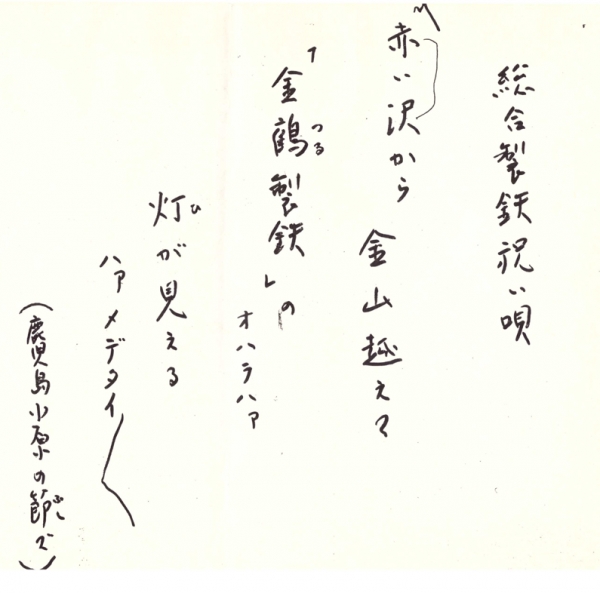 総合製鉄祝い唄
赤い沢から 金山越えて
「金鶴製鉄」の
つる
オハラハア
灯が見える
ひ
ハアメデタイ
(鹿児島小原の節で)
ぶし